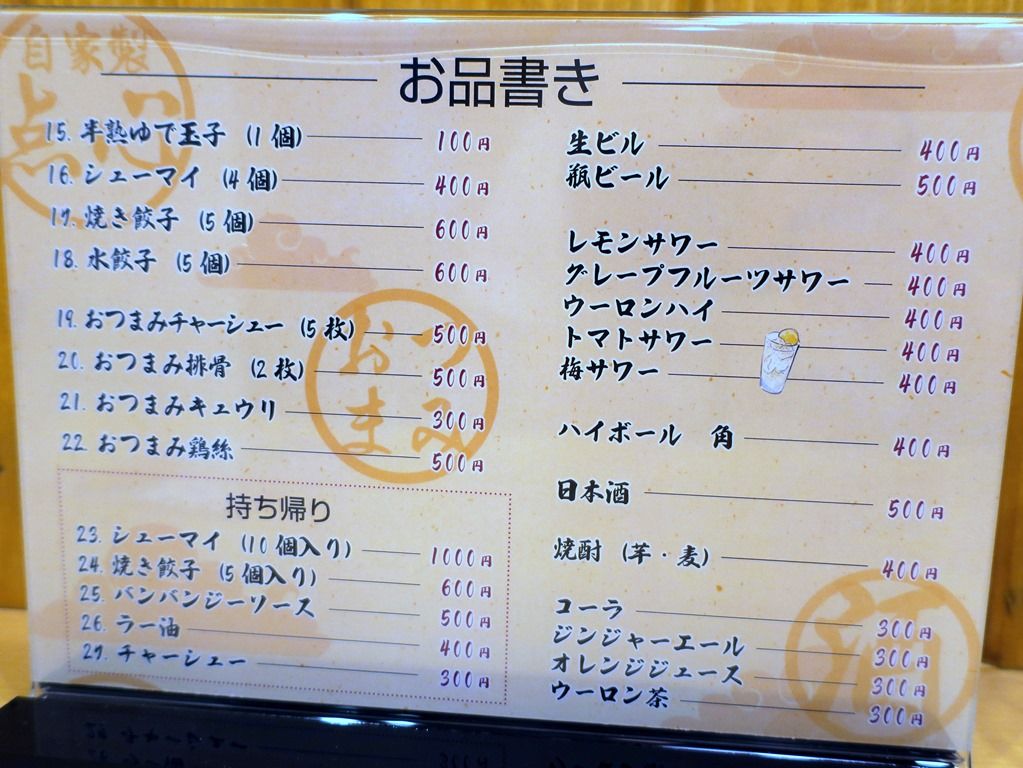 自家製
点心
お品書き
15. 半熟ゆで玉子 (1個) 100円
16. シューマイ (4個) 400円
17. 焼き餃子 (5個) 600円
18. 水餃子 (5個) 600円
19. おつまみチャーシュー (5枚) 500円
20. おつまみ排骨 (2枚) 500円
21. おつまみキュウリ 300円
22. おつまみ鶏絲 500円
おつまみ
持ち帰り
23. シューマイ (10個入り) 1000円
24. 焼き餃子 (5個入り) 600円
25. バンバンジーソース 500円
26. ラー油 400円
27. チャーシュー 300円
生ビル 400円
瓶ビール 500円
レモンサワー 400円
グレープフルーツサワー 400円
ウーロンハイ 400円
トマトサワー 400円
梅サワー 400円
ハイボール 角 400円
日本酒 500円
焼酎 (芋・麦) 400円
コーラ 300円
ジンジャーエール 300円
オレンジジュース 300円
ウーロン茶 300円
酒